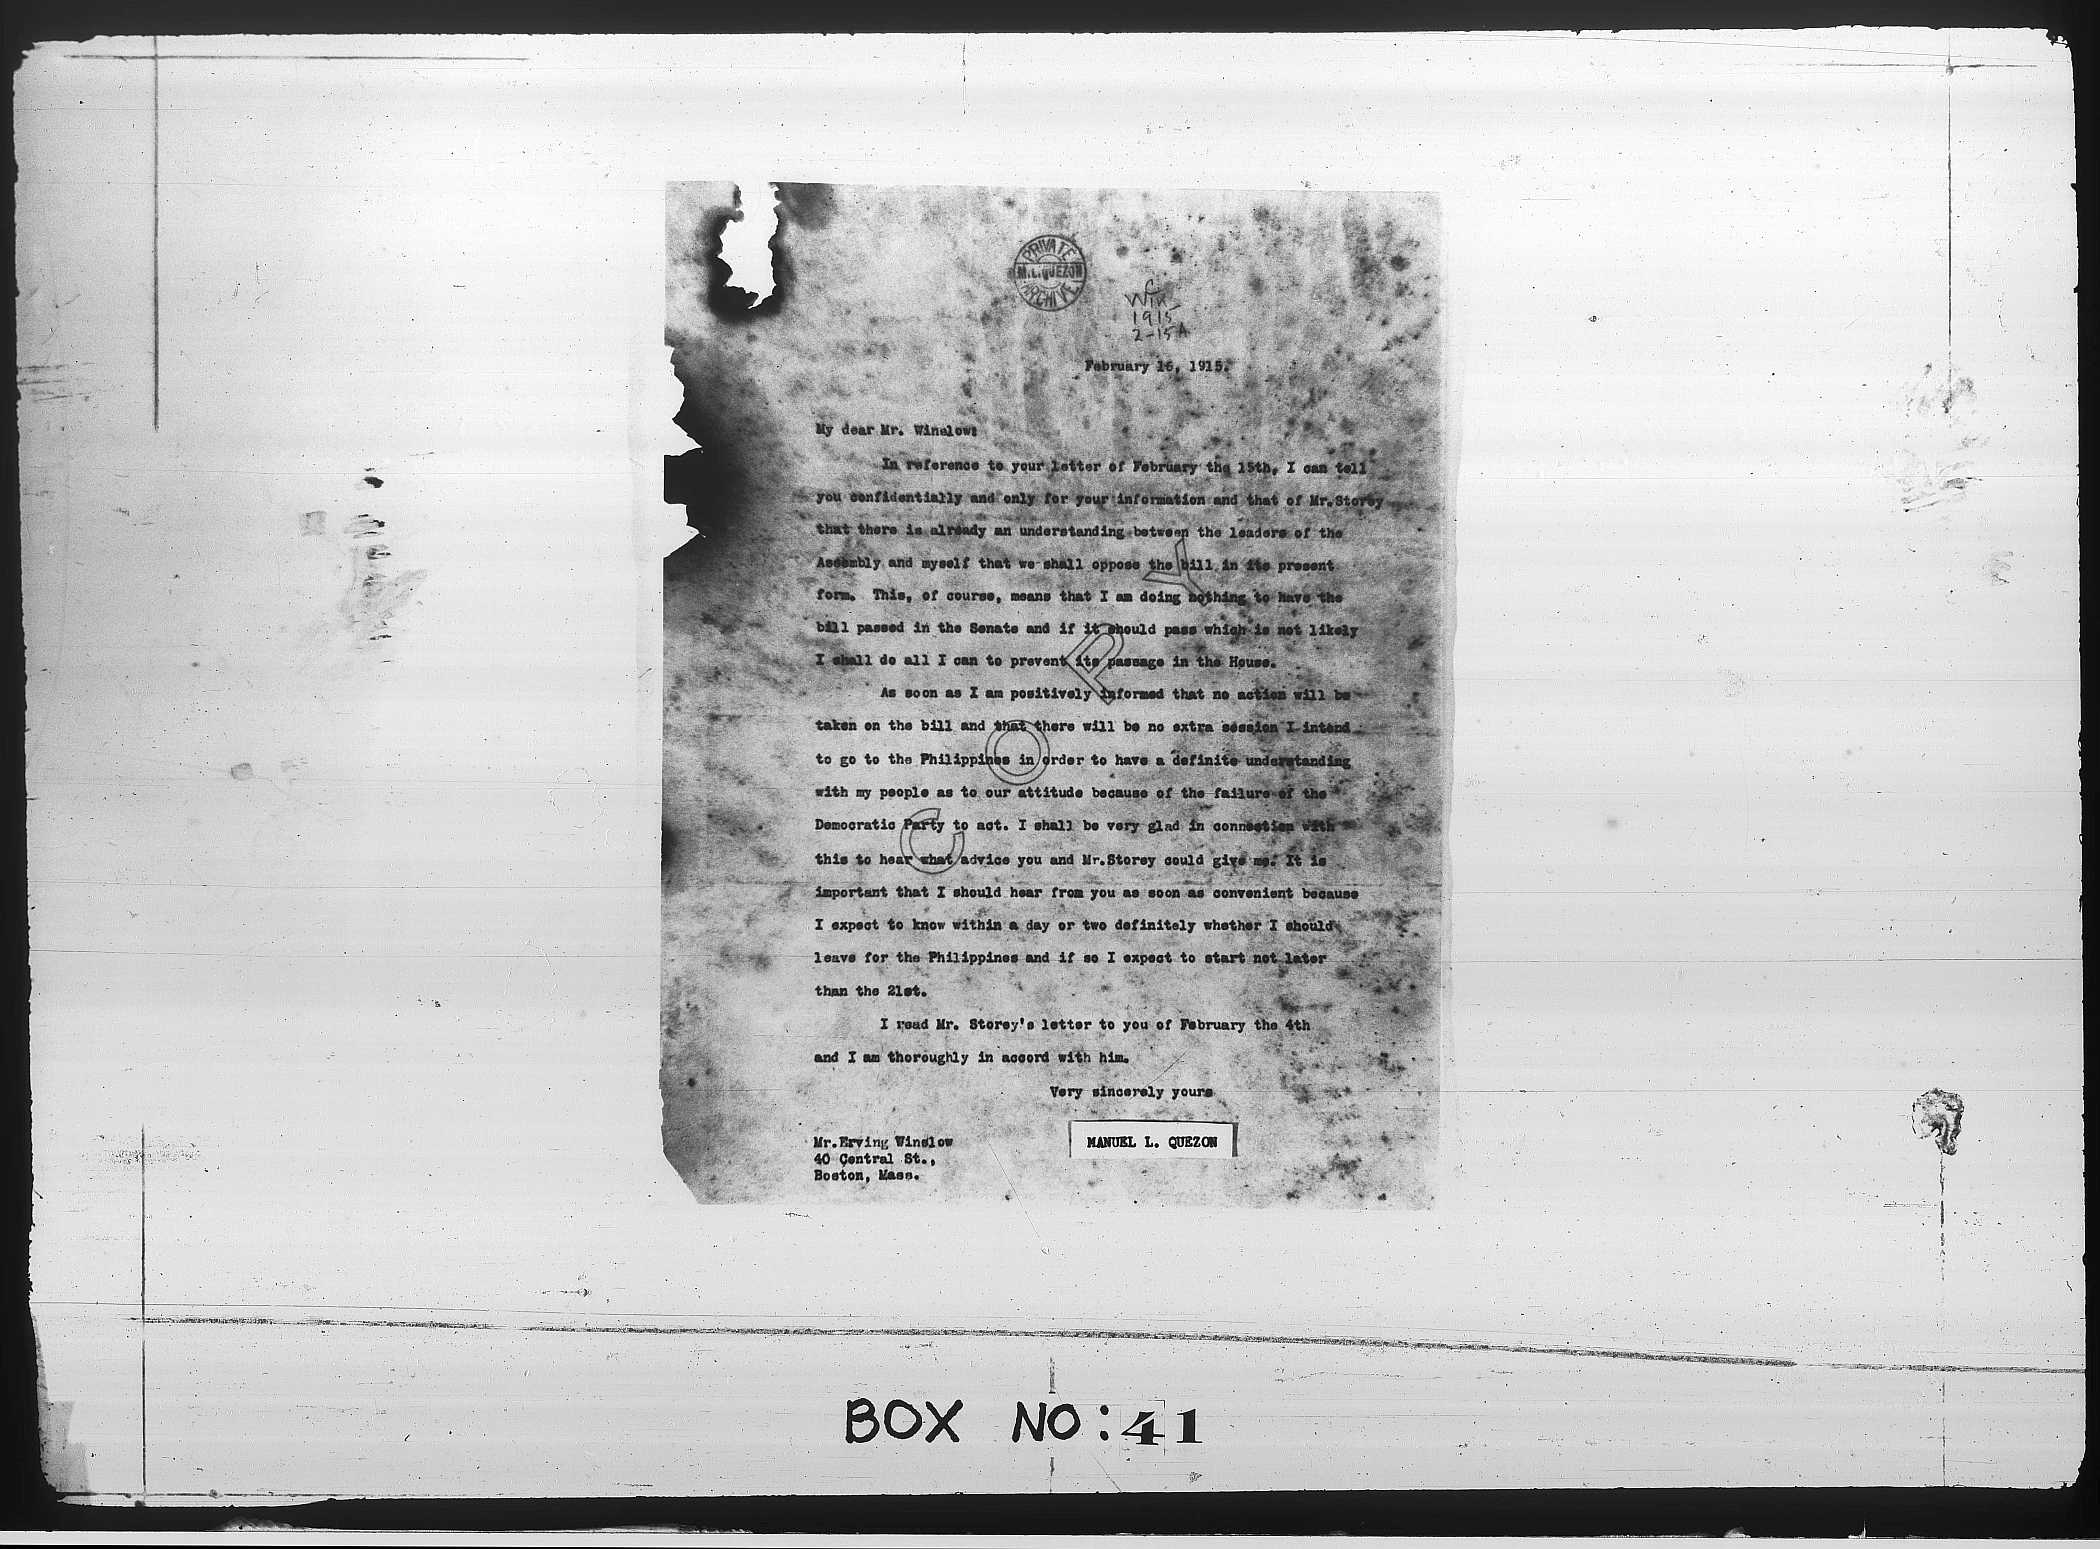 PRIVATE
M.L.QUEZON
ARCHIVE
C
Win
1915
2-15A
February 16, 1915.
My dear Mr. Winslow:
In reference to your letter of February the 15th, I can tell
you confidentially and only for your information and that of Mr.Storey
that there is already an understanding between the leaders of the
Assembly and myself that we shall oppose the bill in its present
form. This, of course, means that I am doing nothing to have the
bill passed in the Senate and if it should pass which is not likely
I shall do all I can to prevent its passage in the House.
As soon as I am positively informed that no action will be
taken on the bill and that there will be no extra session I intend
to go to the Philippines in order to have a definite understanding
with my people as to our attitude because of the failure of the
Democratic Party to act. I shall be very glad in connection with
this to hear what advice you and Mr.Storey could give me. It is
important that I should hear from you as soon as convenient because
I expect to know within a day or two definitely whether I should
leave for the Philippines and if so I expect to start not later
than the 21st.
I read Mr. Storey's letter to you of February the 4th
and I am thoroughly in accord with him.
Very sincerely yours
MANUEL L. QUEZON
Mr.Erving Winslow
40 Central St.,
Boston, Mass.
COPY
BOX NO: 41